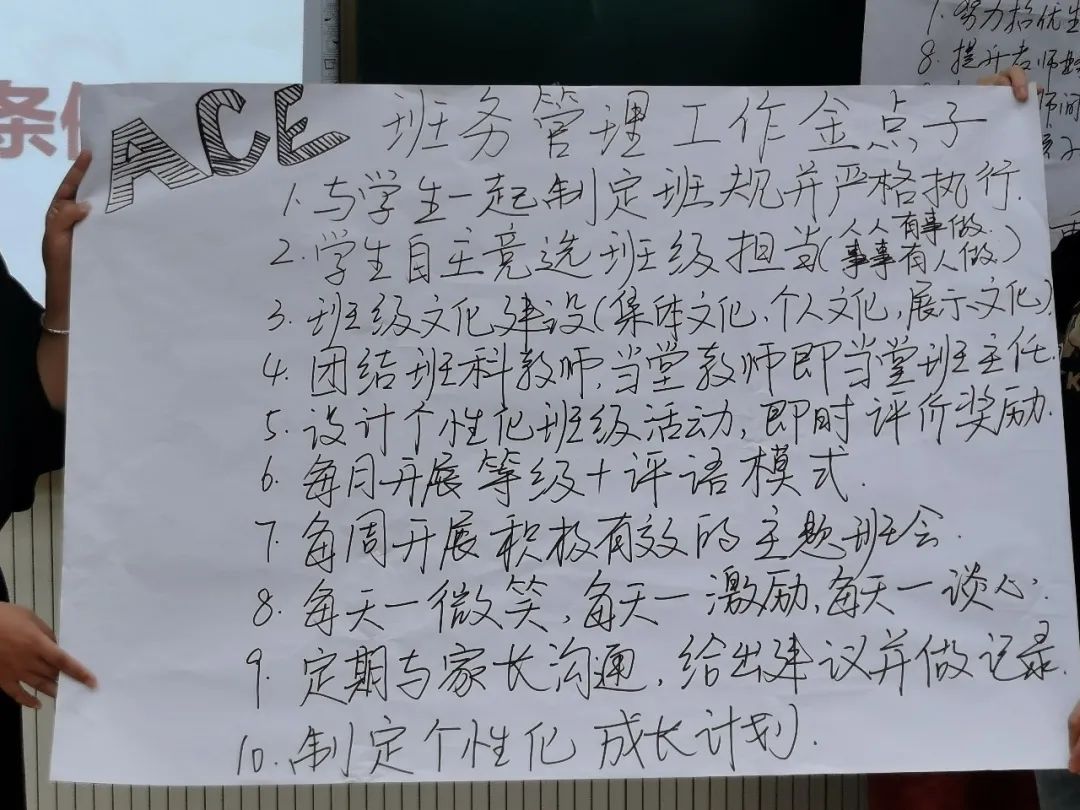 条
ACE 班务管理工作金点子
1. 与学生一起制定班规并严格执行.
2. 学生自主竞选班级担当(人人有事做.事事有人做.)
3. 班级文化建设(集体文化、个人文化,展示文化)
4. 团结班科教师,当堂教师即当堂班主任.
5. 设计个性化班级活动,即时评价奖励.
6. 每月开展等级+评语模式.
7. 每周开展积极有效的主题班会.
8. 每天一微笑,每天一激励,每天一谈心.
9. 定期与家长沟通,给出建议并做记录.
10. 制定个性化成长计划.
7. 努力培优生
8. 提升教师
师间